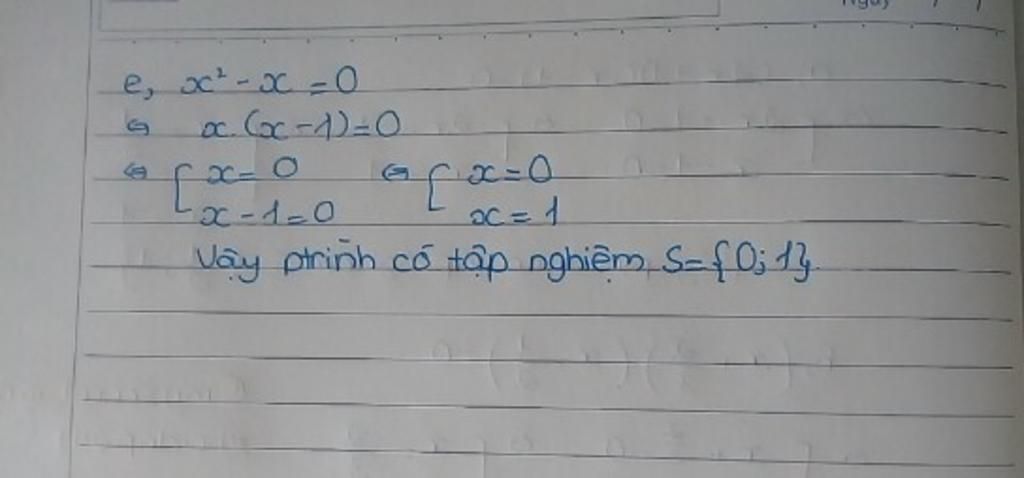 Ngày / /
e, x² - x = 0
⇔ x.(x-1)=0
⇔ [ x = 0 ⇔ [ x = 0
x - 1 = 0 x = 1
Vậy ptrình có tập nghiệm S={0;1}.